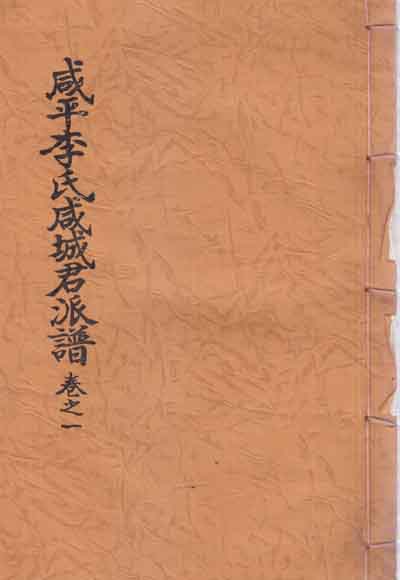 咸平李氏咸城君派譜 卷之一